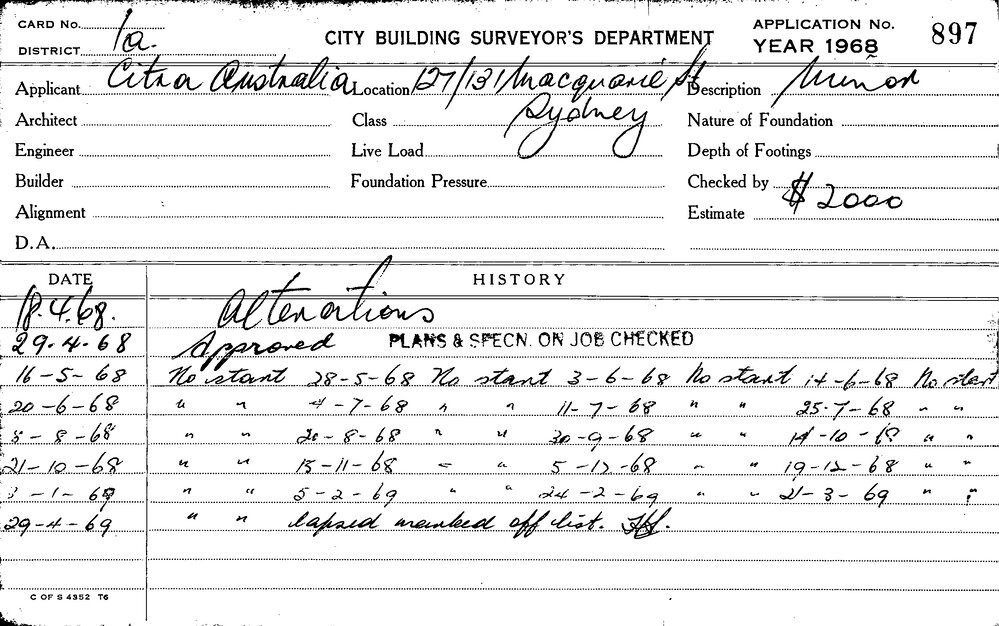 CARD No. 1a. CITY BUILDING SURVEYOR'S DEPARTMENT APPLICATION No. 897
DISTRICT YEAR 1968
Applicant Citra Australia Location 127/131 Macquarie St Description Minor
Architect Class Sydney Nature of Foundation
Engineer Live Load Depth of Footings
Builder Foundation Pressure Checked by
Alignment Estimate $2000
D.A.
DATE HISTORY
18.4.68. Alterations
29-4-68 Approved PLANS & SPECN. ON JOB CHECKED
16-5-68 No start 28-5-68 No start 3-6-68 No start 14-6-68 No start
20-6-68 " " 4-7-68 " " 11-7-68 " " 25-7-68 " "
8-8-68 " " 20-8-68 " " 30-9-68 " " 14-10-68 " "
21-10-68 " " 15-11-68 " " 5-12-68 " " 19-12-68 " "
-1-69 " " 5-2-69 " " 24-2-69 " " 21-3-69 " "
29-4-69 " " lapsed marked off list.
C OF S 4352 T6